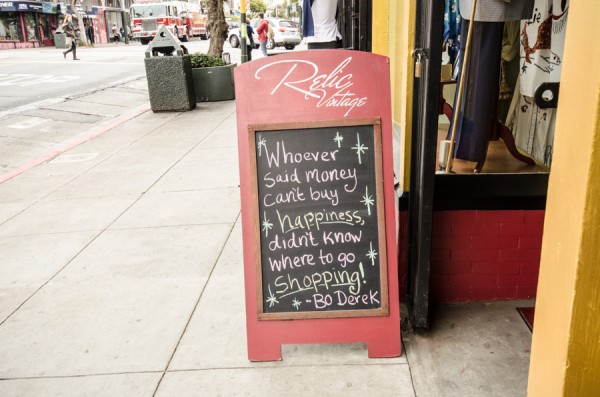 Relic
Vintage
Whoever
Said money
Can't buy
happiness,
didn't know
where to go
Shopping!
- Bo Derek